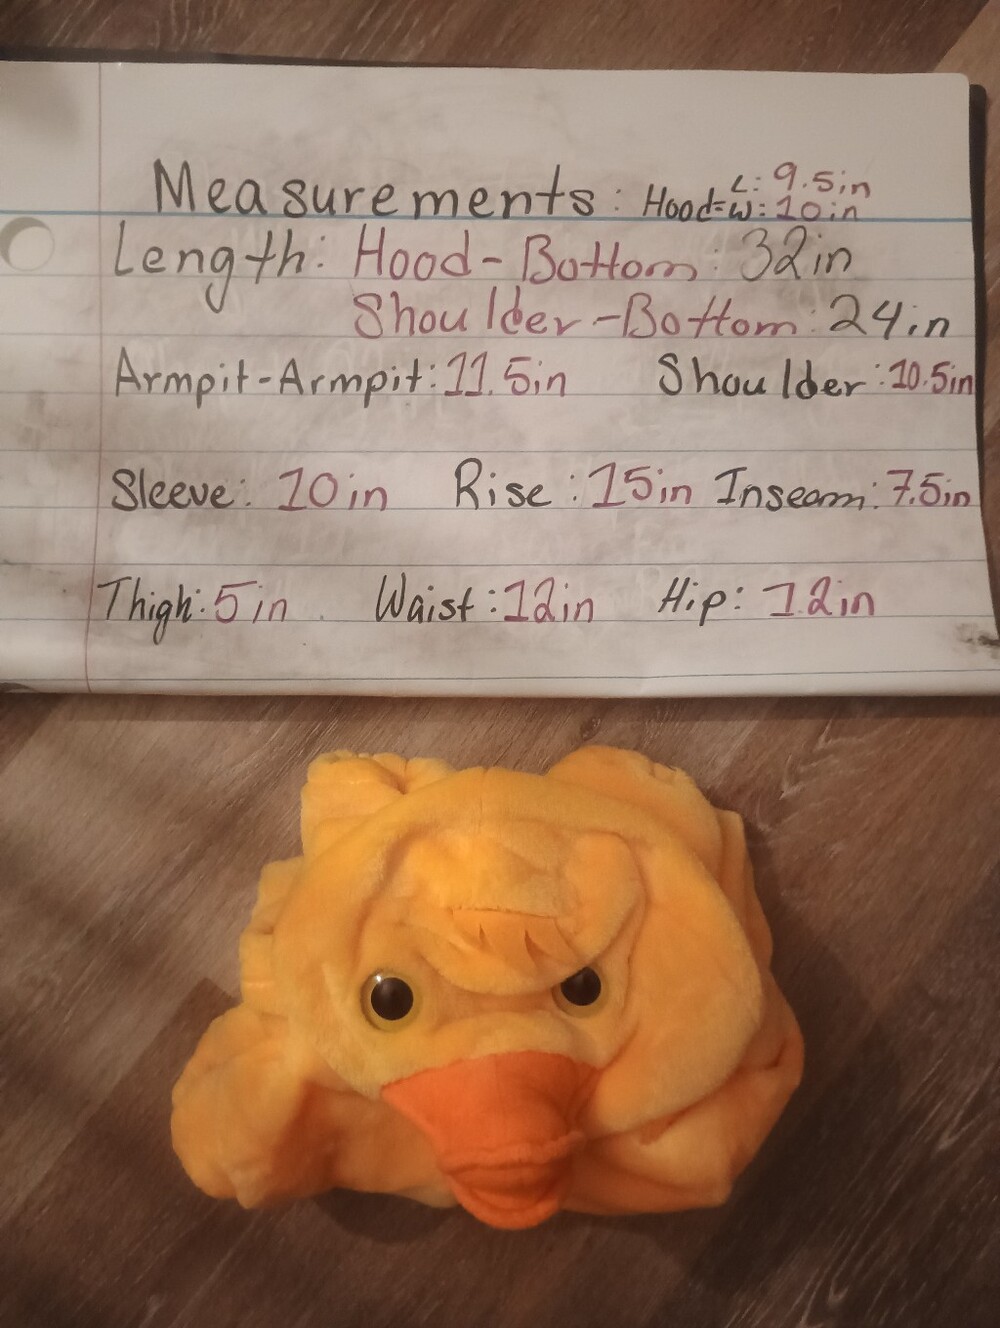 Measurements: Hood= L: 9.5in
W: 10in
Length: Hood-Bottom: 32in
Shoulder-Bottom: 24in
Armpit-Armpit: 11.5in Shoulder: 10.5in
Sleeve: 10in Rise: 15in Inseam: 7.5in
Thigh: 5in Waist: 12in Hip: 12in